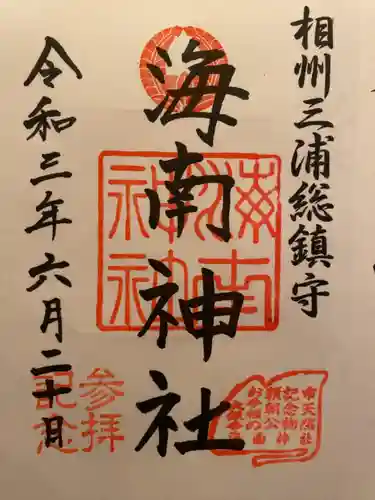 相州三浦総鎮守
海南神社
令和三年六月二十日
海南神社
参拝
記念